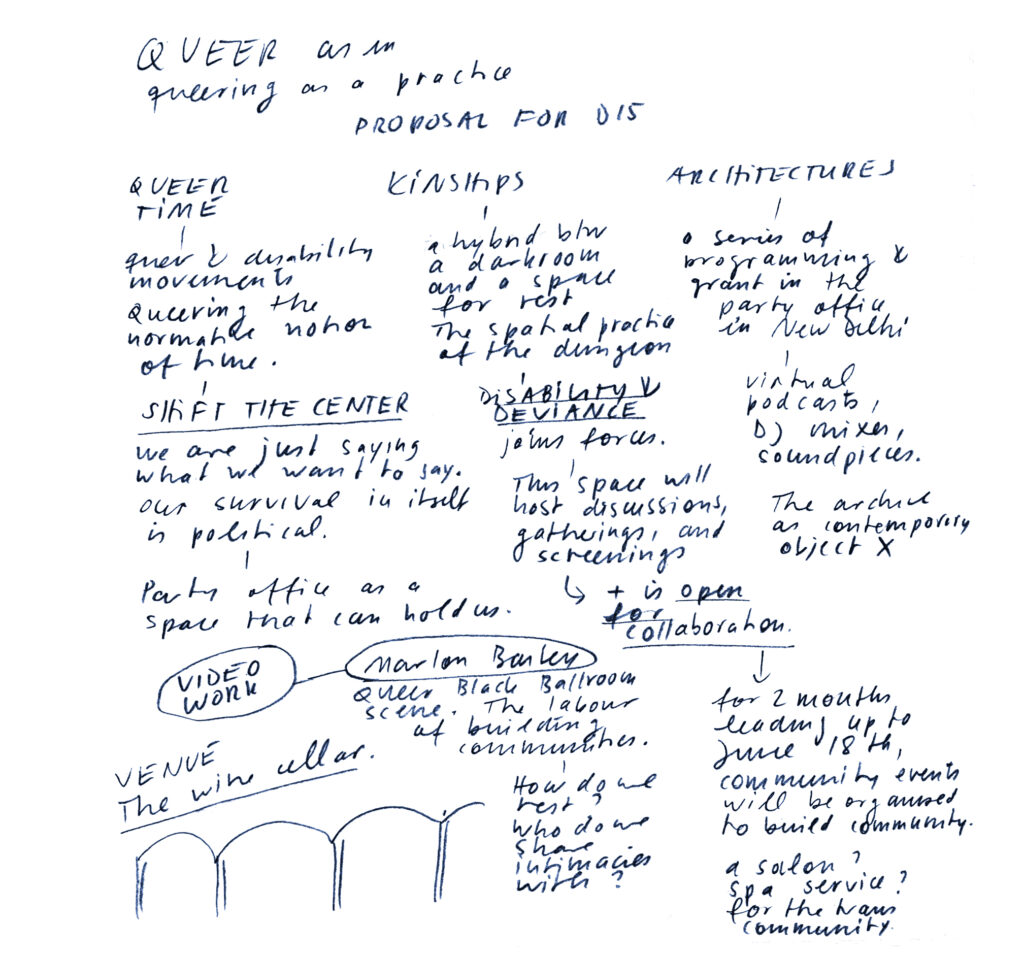 QUEER as in
queering as a practice
PROPOSAL FOR D15
QUEER
TIME
queer & disability
movements
Queering the
normative notion
of time.
SHIFT THE CENTER
we are just saying
what we want to say.
our survival in itself
is political.
Party office as a
space that can hold us.
KINSHIPS
a hybrid btw
a darkroom
and a space
for rest
The spatial practice
of the dungeon
DISABILITY &
DEVIANCE
joins forces.
This space will
host discussions,
gatherings, and
screenings
+ is open
for
collaboration.
for 2 months
leading up to
June 18th,
community events
will be organised
to build community.
a salon?
spa service?
for the trans
community.
ARCHITECTURES
a series of
programming &
grant in the
party office
in New Delhi
virtual
podcasts,
DJ mixes,
soundpieces.
The archive
as contemporary
object X
VIDEO
WORK
Marlon
Queer Black Ballroom
scene. The labour
of building
communities.
How do we
rest?
who do we
share
intimacies
with?
VENUE
The wine cellar.